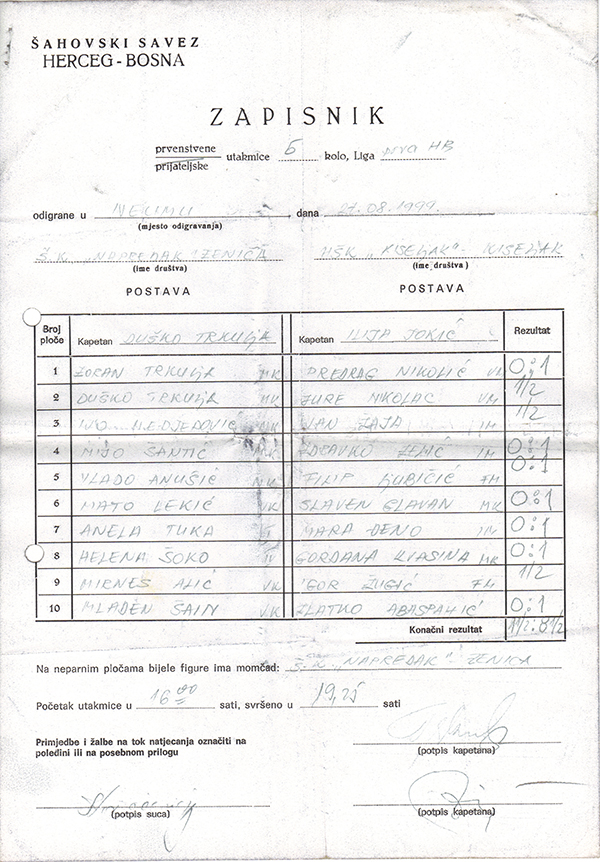 ŠAHOVSKI SAVEZ
HERCEG-BOSNA
ZAPISNIK
prvenstvene
prijateljske
utakmice 5 kolo, Liga prva HB
odigrane u NEUMU, dana 27.08.1999.
(mjesto odigravanja)
Š.K. „NAPREDAK" ZENICA HŠK „KISELJAK" - KISELJAK
(ime društva) (ime društva)
POSTAVA POSTAVA
Broj ploče Kapetan DUŠKO TRKULJA Kapetan ILIJA JOKIĆ Rezultat
1 ZORAN TRKULJA MK PREDRAG NIKOLIĆ VM 0:1
2 DUŠKO TRKULJA MK JURE NIKOLAC VM 1/2
3 IVO MEDJEDOVIĆ MK IVAN ŽAJA IM 1/2
4 MIJO ŠANTIĆ MK ZDRAVKO IM 0:1
5 VLADO ANUŠIĆ MK FILIP LJUBIČIĆ FM 0:1
6 MATO LEKIĆ VK SLAVEN GLAVAN MK 0:1
7 ANELA TUKA MARA ĐENO IM 0:1
8 HELENA ŠOKO IV GORDANA MK 0:1
9 MIRNES ALIĆ VK IGOR ŽUGIĆ FM 1/2
10 MLADEN ŠAIN VK ZLATKO 0:1
Konačni rezultat 1 1/2 : 8 1/2
Na neparnim pločama bijele figure ima momčad: Š.K. „NAPREDAK" ZENICA
Početak utakmice u 16 00 sati, svršeno u 19,25 sati
Primjedbe i žalbe na tok natjecanja označiti na
poledini ili na posebnom prilogu
(potpis kapetana)
(potpis suca) (potpis kapetana)